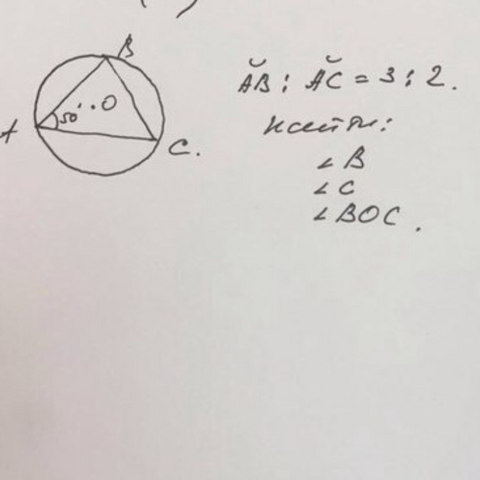 B
A 50° O
C.
A͝B : A͝C = 3 : 2.
Найти:
∠B
∠C
∠BOC.